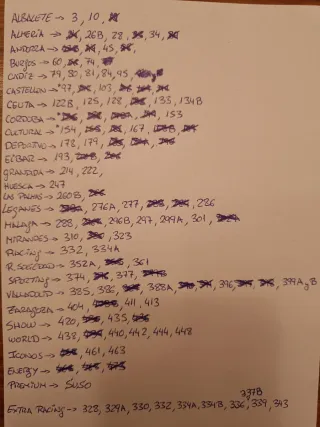 ALBACETE → 3, 10,
ALMERÍA → 26B, 28, 34,
ANDORRA → 45,
BURGOS → 60, 74,
CADIZ → 79, 80, 81, 84, 95,
CASTELLON → 97, 103,
CEUTA → 122B, 125, 128, 133, 134B
CORDOBA → 153
CULTURAL → 154, 167,
DEPORTIVO → 178, 179,
EIBAR → 193,
GRANDIDA → 214, 222,
HUESCA → 247
LAS PALMAS → 260B,
LEGANES → 276A, 277, 286
MALAGA → 288, 296B, 297, 299A, 301,
MIRANDES → 310, 323
RACING → 332, 334A
R. SOCIEDAD → 352A, 361
SPORTING → 374, 377,
VALLADOLID → 385, 386, 388A, 396, 399A y B
ZARAGOZA → 404, 411, 413
SHOW → 420, 435,
WORLD → 438, 440, 442, 444, 448
ICONOS → 461, 463
ENERGY →
PREMIUM → SUSO
337B
EXTRA RACING → 328, 329A, 330, 332, 334A, 334B, 336, 339, 343